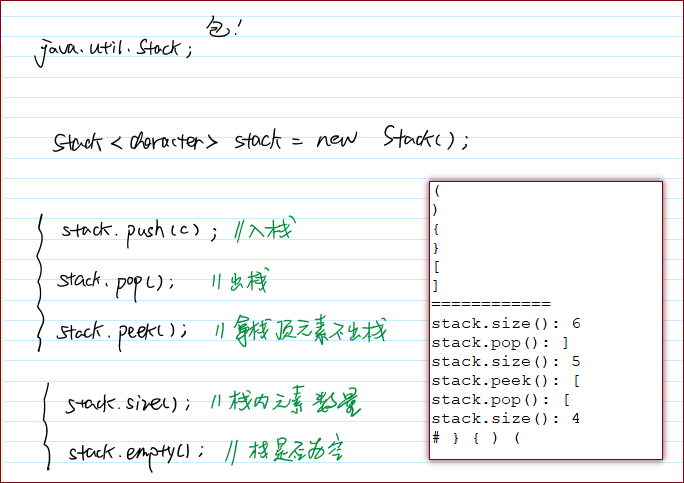 包!
java.util.Stack;
Stack <character> stack = new Stack();
stack.push(c); //入栈
stack.pop(); //出栈
stack.peek(); //拿栈顶元素不出栈
stack.size(); //栈内元素数量
stack.empty(); //栈是否为空
(
)
{
}
[
]
============
stack.size(): 6
stack.pop(): ]
stack.size(): 5
stack.peek(): [
stack.pop(): [
stack.size(): 4
# } { ) (